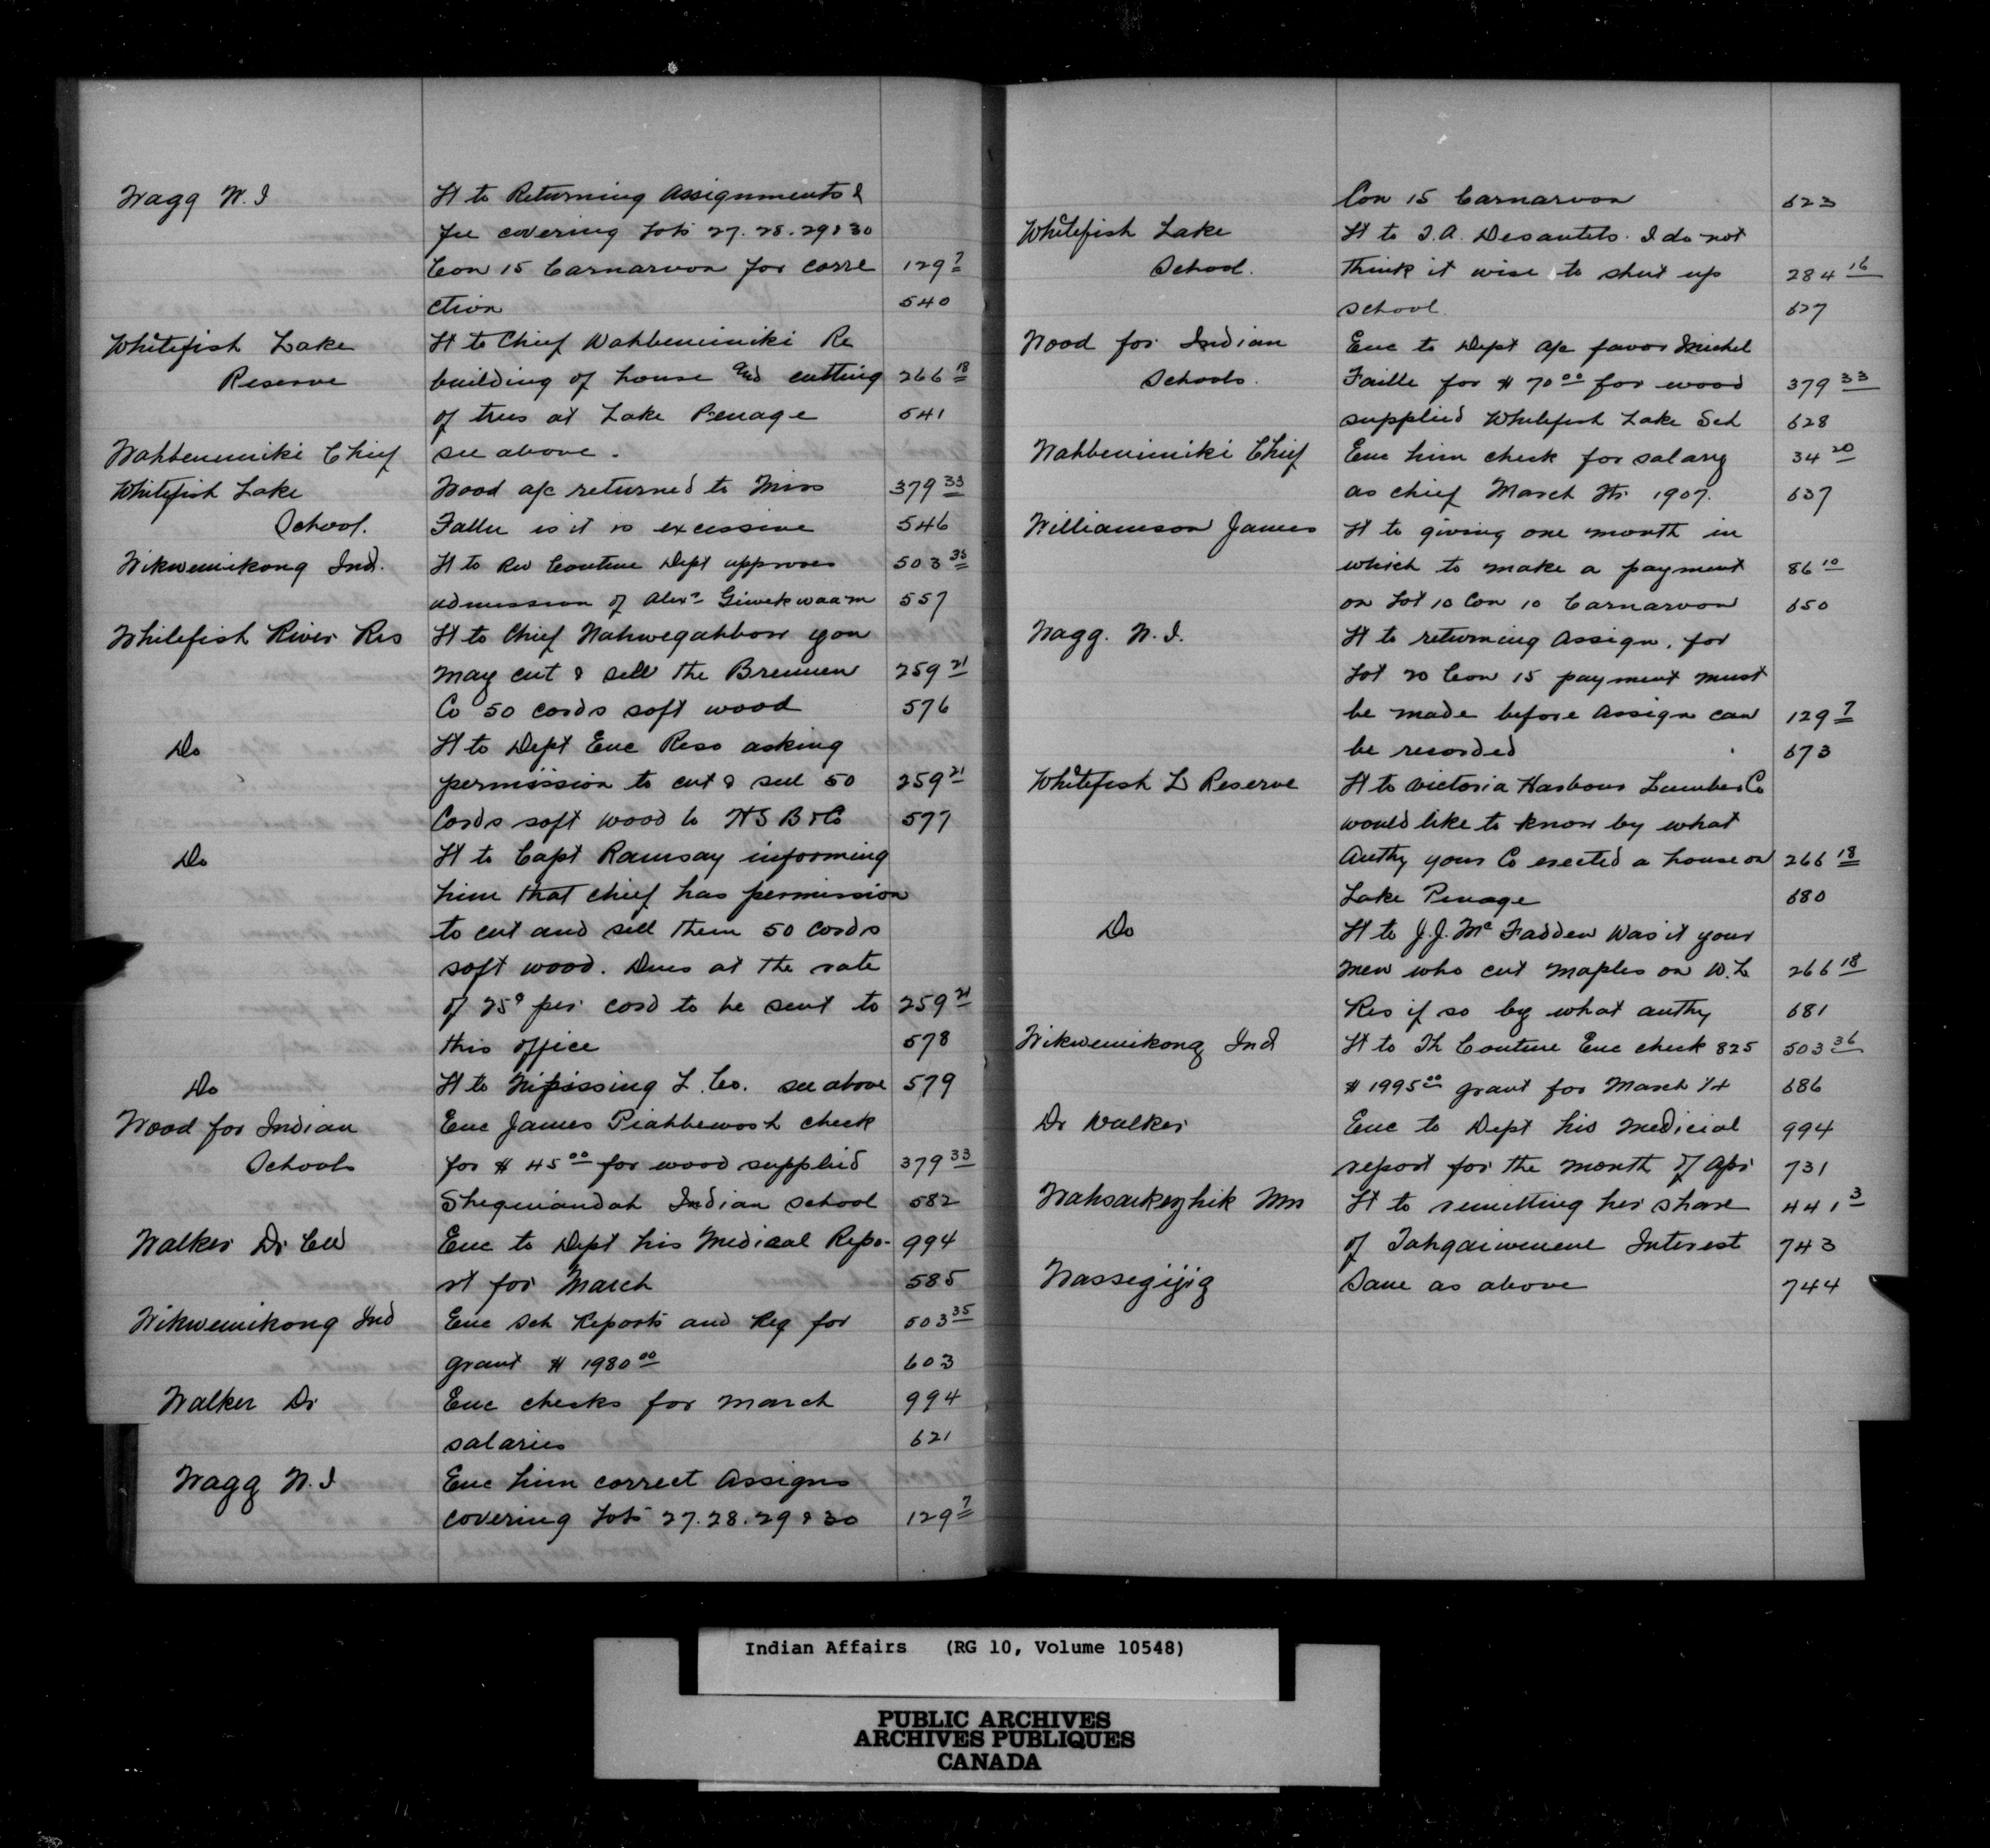 Wagg W.I Lt to Returning Assignments &
fee covering Lots 27. 28. 29 & 30
Con 15 Carnarvon for corre 129 7
ction 540
Whitefish Lake Lt to Chief Wahbenimiki Re
Reserve building of house and cutting 266 18
of trees at Lake Penage 541
Wahbenimiki Chief see above.
Whitefish Lake Wood a/c returned to Miss 379 33
School. Faller is it is excessive 546
Wikwemikong Ind. Lt to Rev Couture Dept approves 503 35
admission of Alexr Giwekwaam 557
Whitefish River Res Lt to Chief Nahwegahbow you
may cut & sell the Brennen 259 21
Co 50 cords soft wood 576
Do Lt to Dept Enc Reso asking
permission to cut & sell 50 259 21
Cords soft wood to HS B & Co 577
Do Lt to Capt Ramsay informing
him that chief has permission
to cut and sell them 50 cords
soft wood. Dues at the rate
of 25¢ per cord to be sent to 259 21
this office 578
Do Lt to Nipissing L. Co. see above 579
Wood for Indian Enc James Piahbewosh check
Schools for $ 45 00 for wood supplied 379 33
Sheguiandah Indian School 582
Walker Dr Enc to Dept his Medical Repo- 994
rt for March 585
Wikwemikong Ind Enc Sch Reports and Req for 503 35
grant $ 1980 00 603
Walker Dr Enc checks for march 994
salaries 621
Wagg W.I Enc him correct Assigns
covering Lots 27. 28. 29 & 30 129 7
Con 15 Carnarvon 623
Whitefish Lake Lt to T.A. Desautels. I do not
School. think it wise to shut up 284 16
school. 627
Wood for Indian Enc to Dept a/c favor Michel
Schools. Faille for $ 70 00 for wood 379 33
supplied Whitefish Lake Sch 628
Wahbenimiki Chief Enc him check for salary 34 20
as chief March Qtr 1907. 637
Williamson James Lt to giving one month in
which to make a payment 86 10
on Lot 10 Con 10 Carnarvon 650
Wagg. W.I. Lt to returning Assign. for
Lot 20 Con 15 payment must
be made before Assign can 129 7
be recorded 673
Whitefish L Reserve Lt to Victoria Harbour Lumber Co
would like to know by what
Authy your Co erected a house on 266 18
Lake Penage 680
Do Lt to J.J. Mc Fadden Was it your
men who cut maples on W.L 266 18
Res if so by what authy 681
Wikwemikong Ind Lt to Th Couture Enc check 825 503 36
$ 1995 00 grant for March 686
Dr Walker Enc to Dept his medicial 994
report for the month of Apr 731
Wahsaikezhik Mrs Lt to remitting her share 441 3
of Tahgaiwenene Interest 743
Wassegijig Same as above 744
Indian Affairs (RG 10, Volume 10548)
PUBLIC ARCHIVES
ARCHIVES PUBLIQUES
CANADA